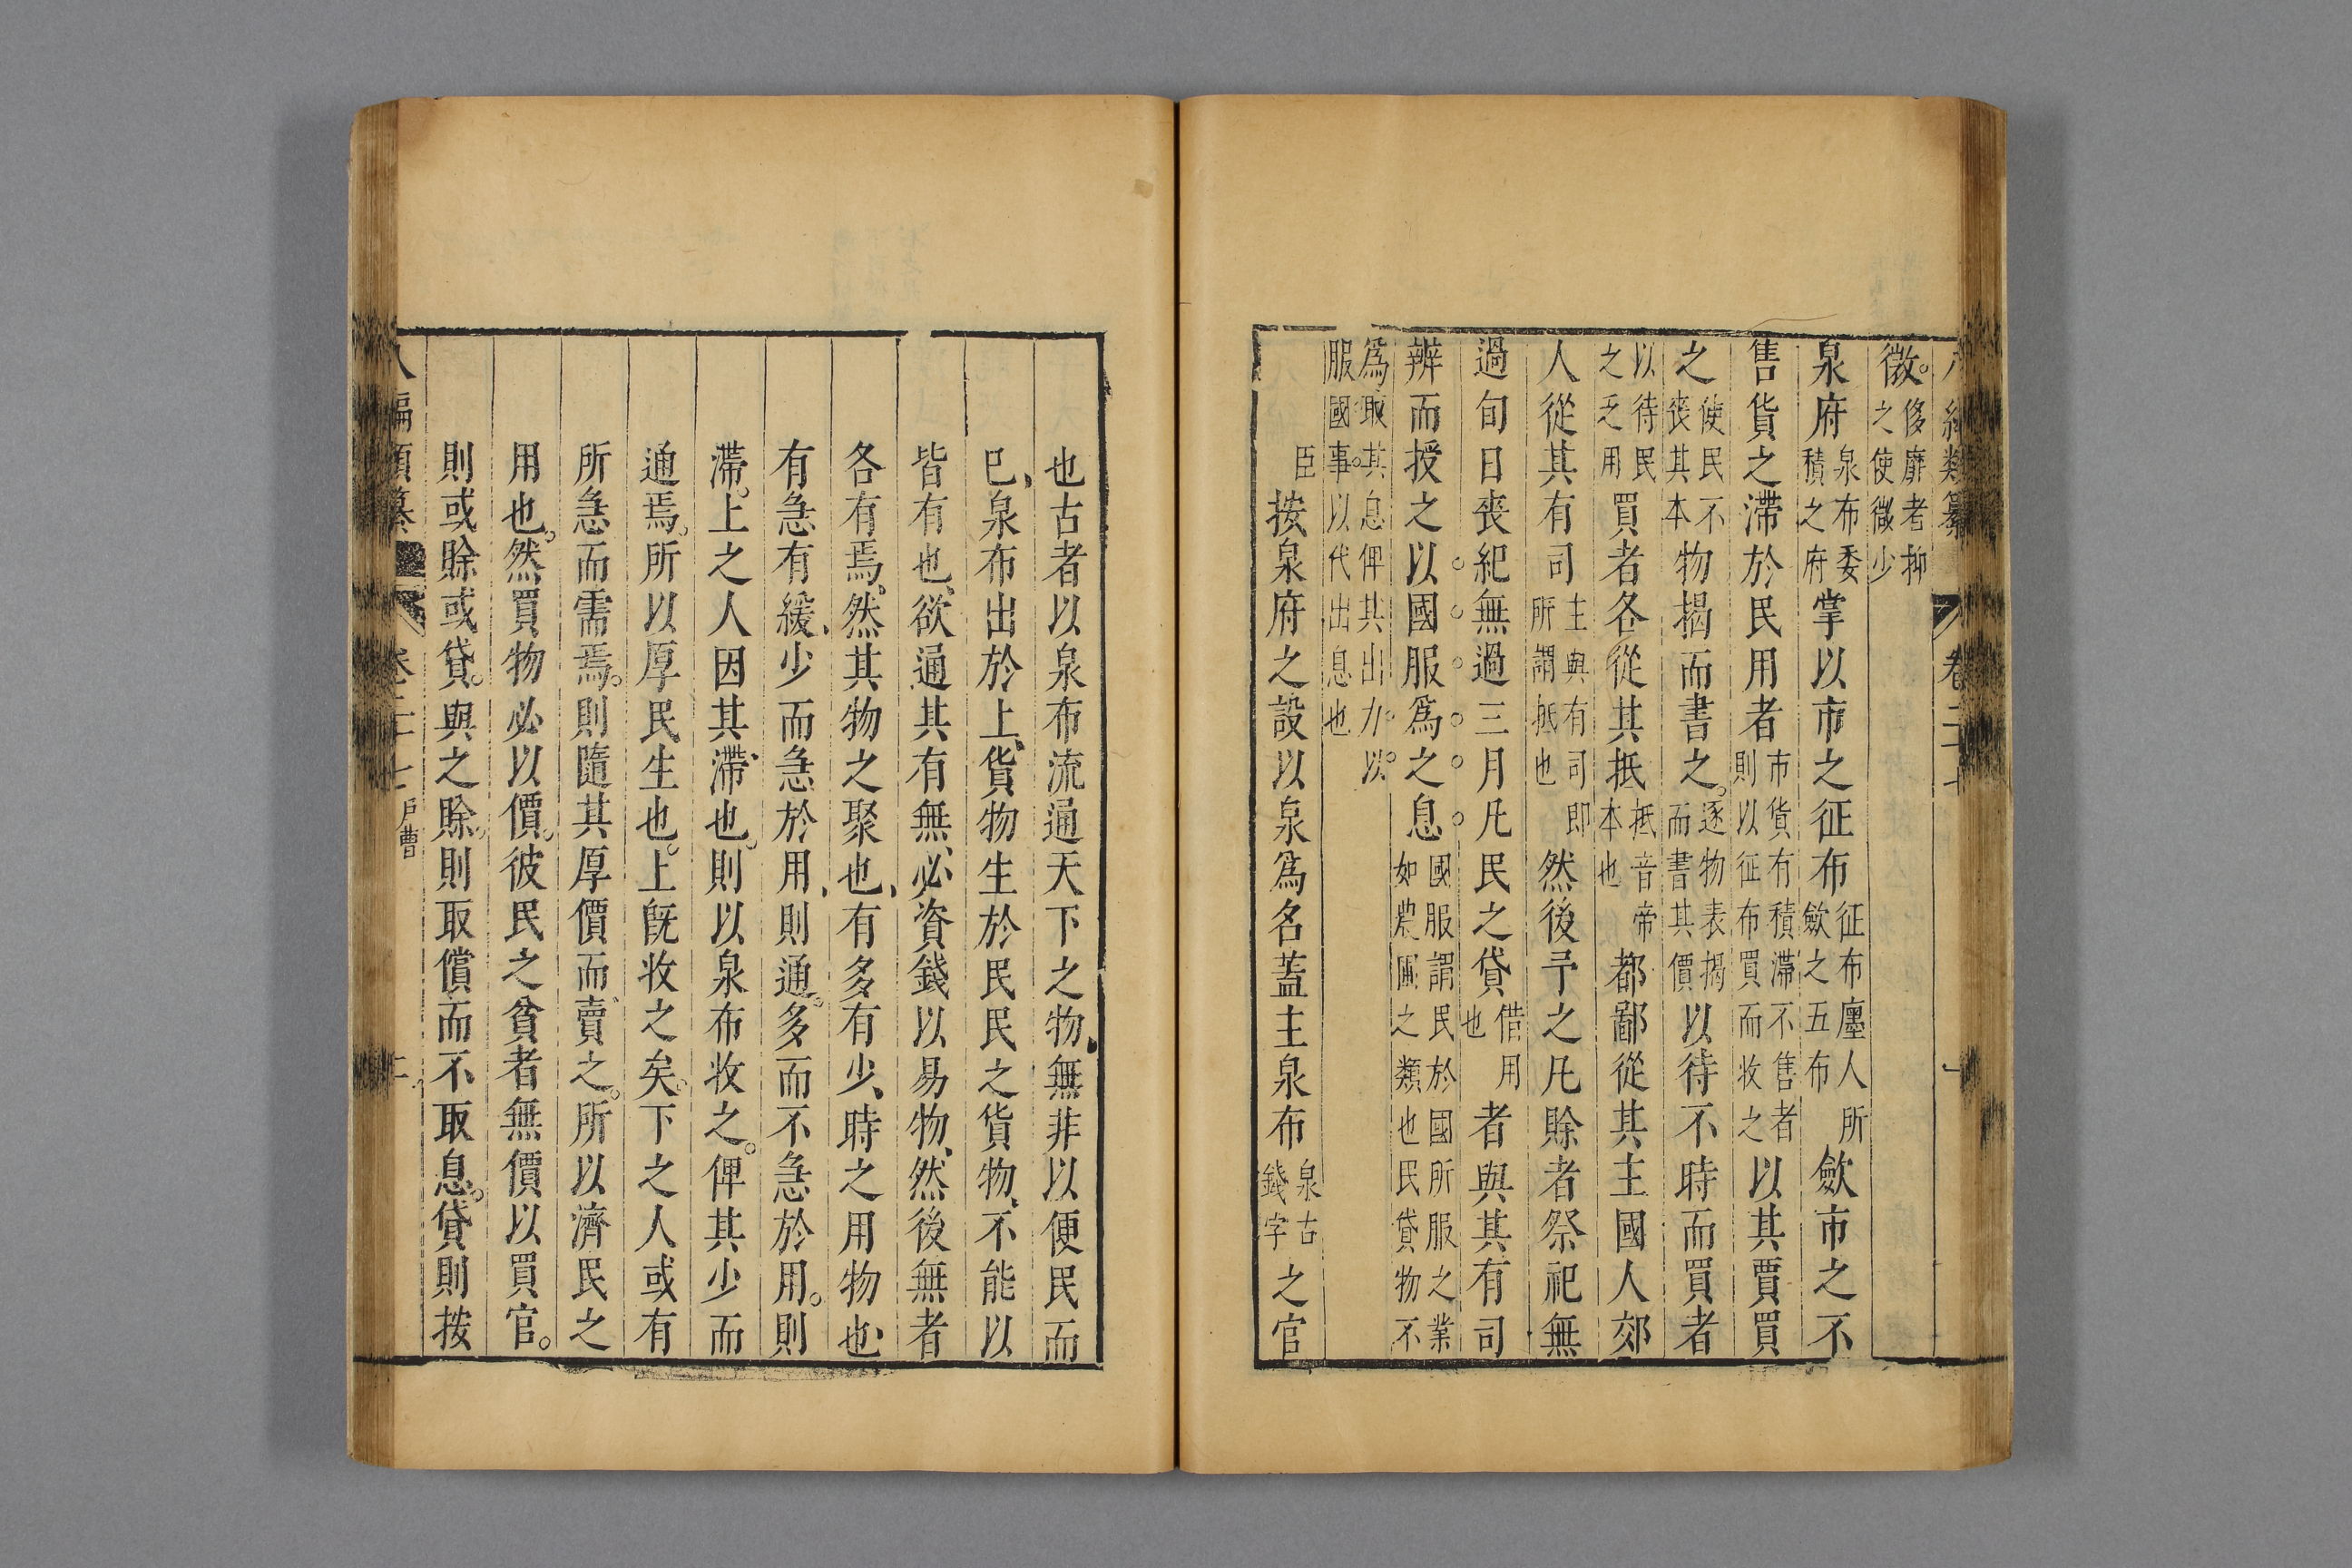 八編類纂 卷二十七 一
徵侈靡者抑之使微少
泉府泉布委積之府掌以市之征布征布廛人所斂之五布斂市之不
售貨之滯於民用者市貨有積滯不售者則以征布買而收之以其賈買
之使民不喪其本物揭而書之逐物表揭而書其價以待不時而買者
以待民之乏用買者各從其抵抵音帝本也都鄙從其主國人郊
人從其有司主與有司即所謂抵也然後予之凡賖者祭祀無
過旬日喪紀無過三月凡民之貸借用也者與其有司
辨而授之以國服爲之息國服謂民於國所服之業如農圃之類也民貸物不
爲取其息俾其出力以服國事以代出息也
臣按泉府之設以泉爲名蓋主泉布泉古錢字之官
也古者以泉布流通天下之物無非以便民而
已泉布出於上貨物生於民民之貨物不能以
皆有也欲通其有無必資錢以易物然後無者
各有焉然其物之聚也有多有少時之用物也
有急有緩少而急於用則通多而不急於用則
滯上之人因其滯也則以泉布收之俾其少而
通焉所以厚民生也上旣收之矣下之人或有
所急而需焉則隨其厚價而賣之所以濟民之
用也然買物必以價彼民之貧者無價以買官
則或賖或貸與之賖則取償而不取息貸則按
八編類纂 卷二十七 戶曹 二